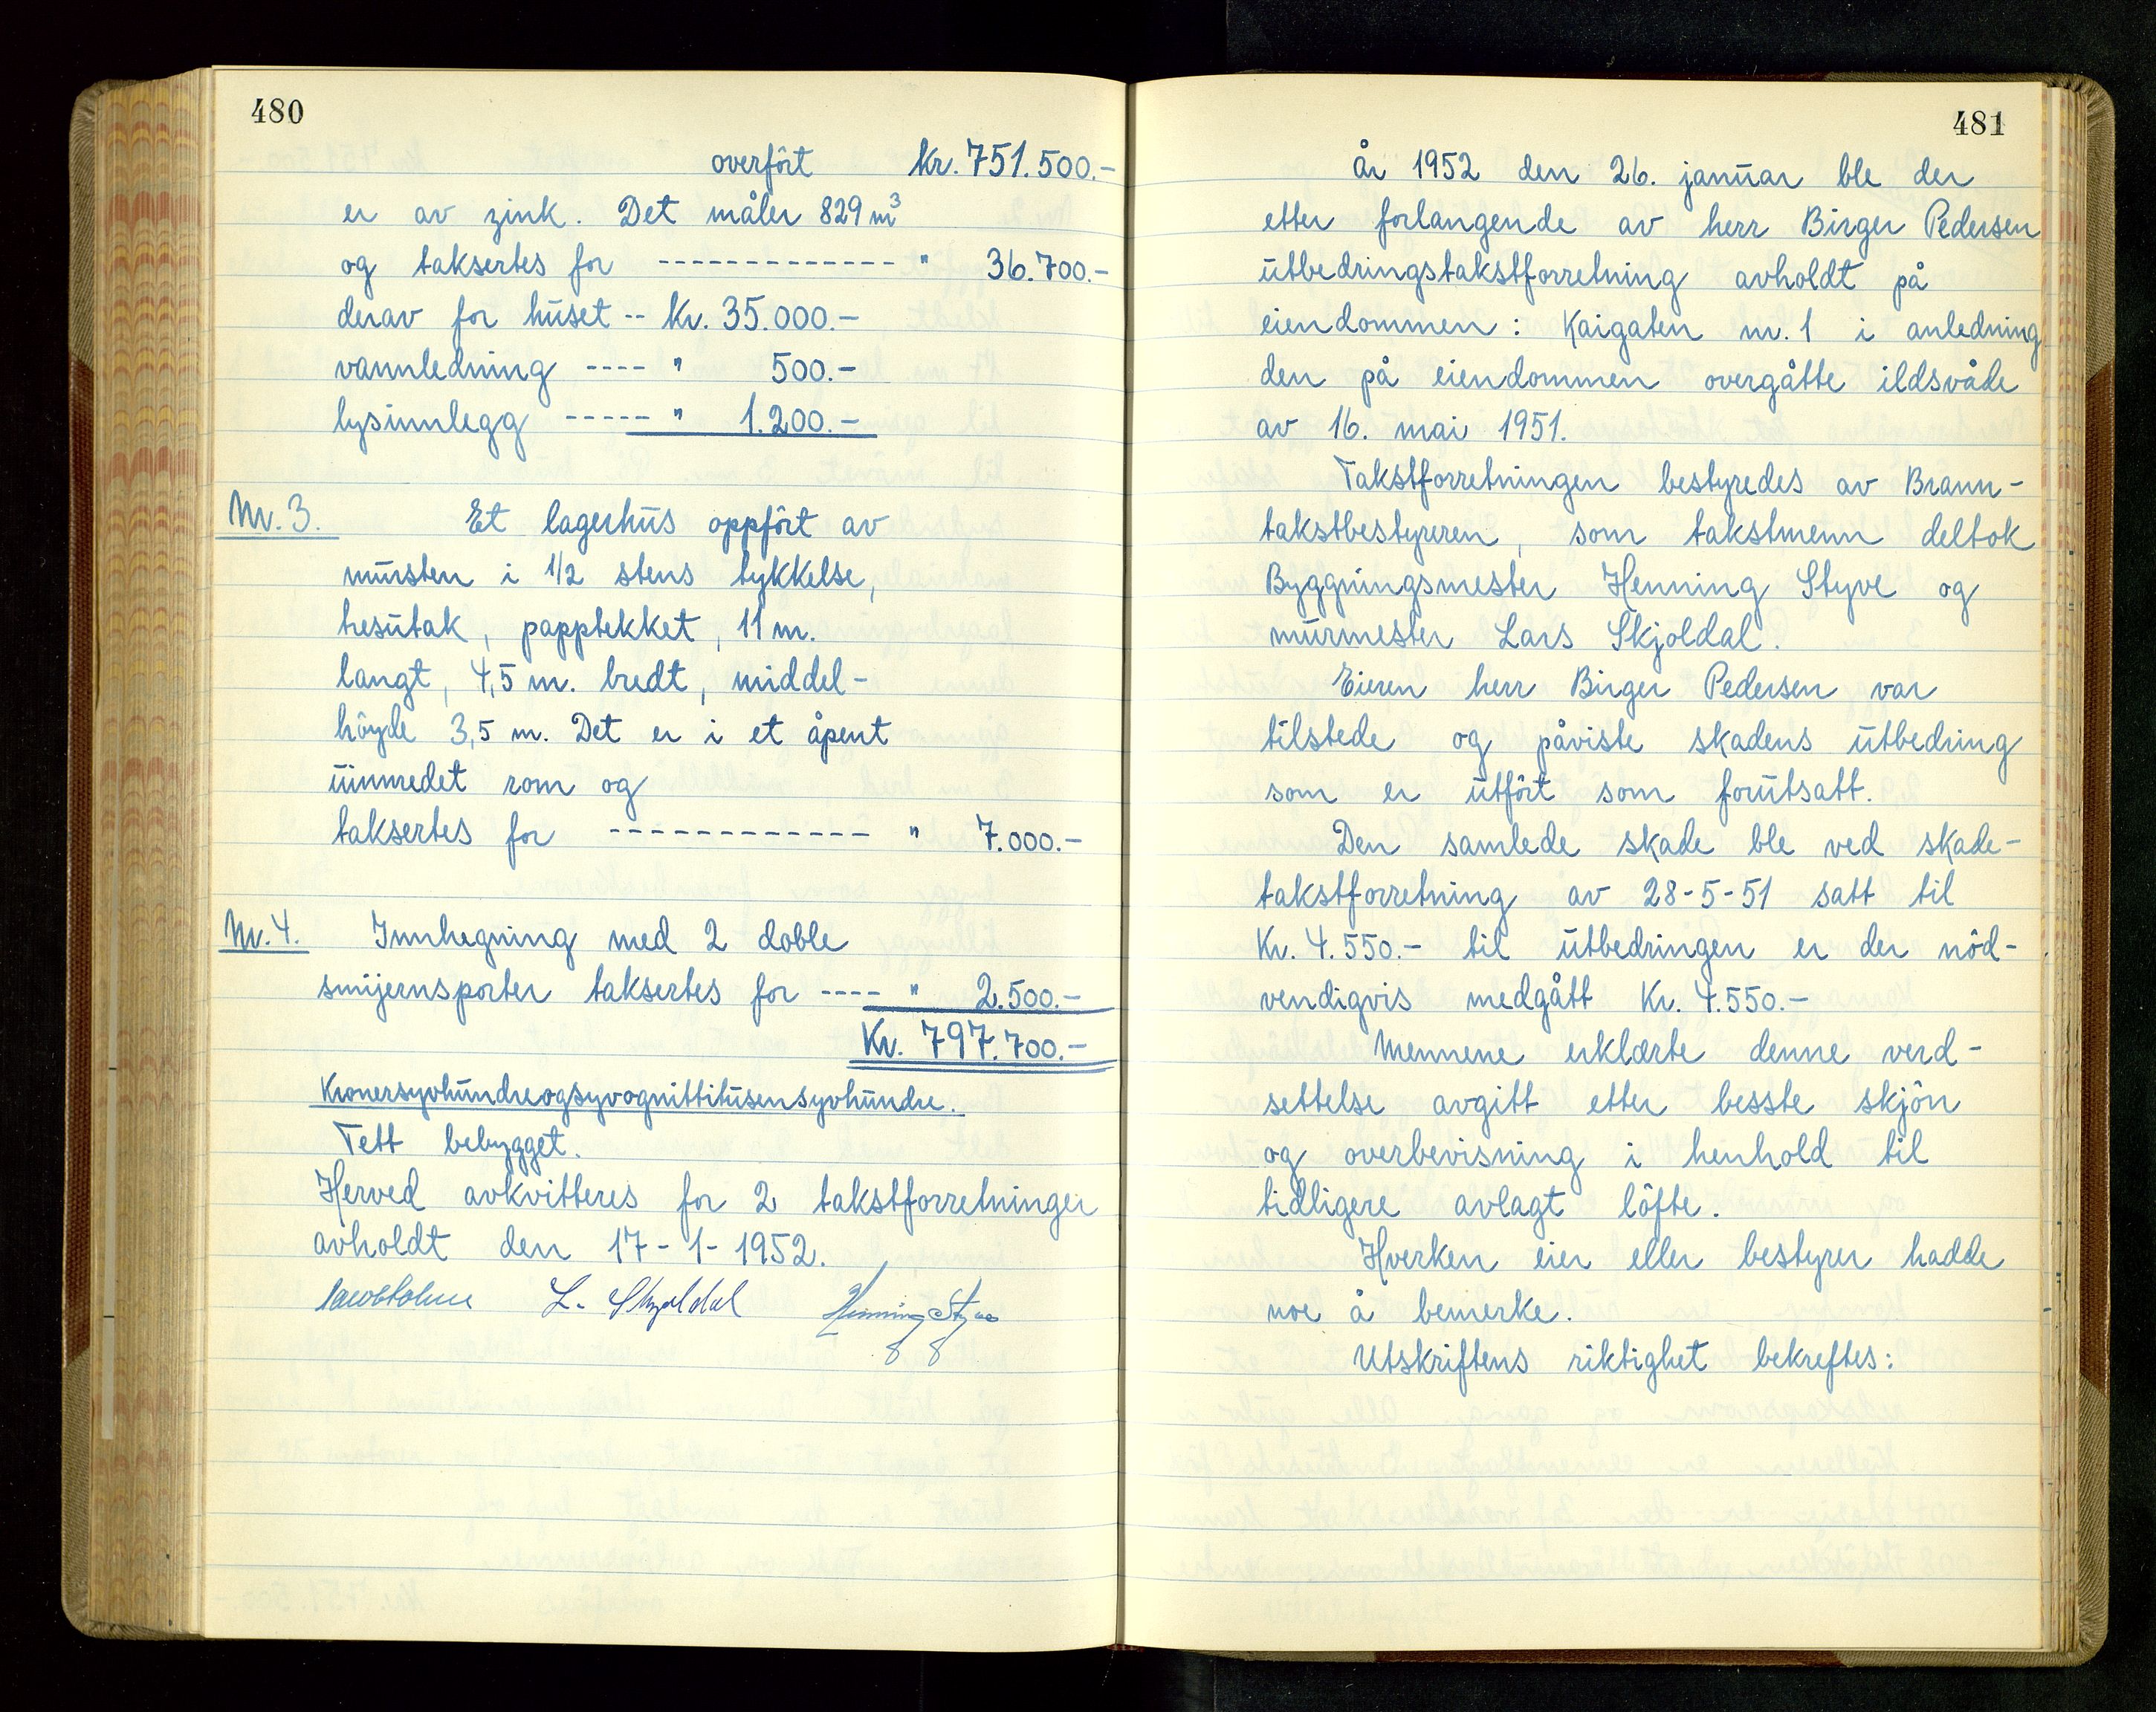 480
overført Kr. 751.500.-
er av zink. Det måler 829 m³
og taksertes for ------------- " 36.700.-
derav for huset -- Kr. 35.000.-
vannledning ---- " 500.-
lysinnlegg ----- " 1.200.-
Nr. 3. Et lagerhus oppført av
mursten i 1/2 stens tykkelse,
hesutak, papptekket, 11 m.
langt, 4,5 m. bredt, middel-
høyde 3,5 m. Det er i et åpent
uinnredet rom og
taksertes for ------------- " 7.000.-
Nr. 4. Innhegning med 2 doble
smijernsporter taksertes for ---- " 2.500.-
Kr. 797.700.-
Kronersyvhundreogsyvognittitusensyvhundre.
Tett bebygget.
Herved avkvitteres for 2 takstforretninger
avholdt den 17-1-1952.
L. Skjoldal Henning Styve
481
År 1952 den 26. januar ble der
etter forlangende av herr Birger Pedersen
utbedringstakstforretning avholdt på
eiendommen: Kaigaten nr. 1 i anledning
den på eiendommen overgåtte ildsvåde
av 16. mai 1951.
Takstforretningen bestyredes av Brann-
takstbestyreren, som takstmenn deltok
Byggningsmester Henning Styve og
murmester Lars Skjoldal.
Eieren herr Birger Pedersen var
tilstede og påviste skadens utbedring
som er utført som forutsatt.
Den samlede skade ble ved skade-
takstforretning av 28-5-51 satt til
Kr. 4.550.- til utbedringen er der nød-
vendigvis medgått Kr. 4.550.-
Mennene erklærte denne verd-
settelse avgitt etter besste skjøn
og overbevisning i henhold til
tidligere avlagt løfte.
Hverken eier eller bestyrer hadde
noe å bemerke.
Utskriftens riktighet bekreftes: